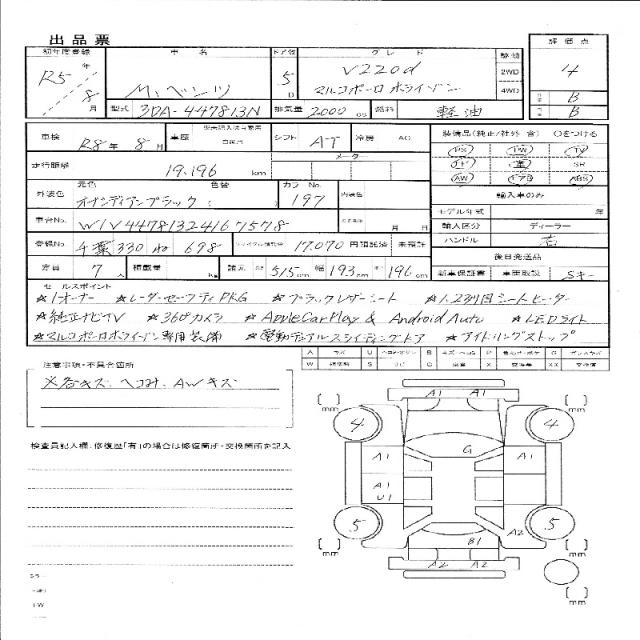 出品票
初年度登録 車名 ドア数 グレード 装備 評価点
R5年 8月 M.ベンツ 5D V220d マルコポーロ ホライゾン 2WD 4WD 4
B
B
型式 3DA-447813N 排気量 2000cc 燃料 軽油
車検 R8年8月 車歴 シフト AT 冷房 AC 装備品(純正/社外 含) ○をつける
PS PW TV
走行距離 19,196 km メーター SR
AW エアB ABS
外装色 元色 オブシディアンブラック 色替 ( ) カラーNo. 197 内装色 輸入車のみ
モデル年式 年
車台No. W1V44781324167578 月 日 輸入区分 ディーラー
登録No. 千葉 330 ね 698 リサイクル預託金 17,070 円預託済 未預計 ハンドル 右
後日発送品
定員 7人 積載量 kg 諸元 長さ 515cm 幅 193cm 高さ 196cm 新車保証書 車両取説 Sキー
セールスポイント
★1オーナー ★レーダーセーフティPKG ★ブラックレザーシート ★1.2列目シートヒーター
★純正ナビTV ★360°カメラ ★AppleCarPlay & Android Auto ★LEDライト
★マルコポーロホライゾン専用装備 ★電動デュアルスライディングドア ★アイドリングストップ
A キズ U B P G
W S C X XX
注意事項・不具合箇所
※各キズ、ヘコみ、AWキズ
検査員記入欄:修復歴「有」の場合は修復箇所・交換箇所を記入
[ ]mm [ ]mm
A1 A1
4 4
G
A1 A1
A1
U1
5 5
A2
B1
[ ]mm A2 A2 [ ]mm
[ ]mm